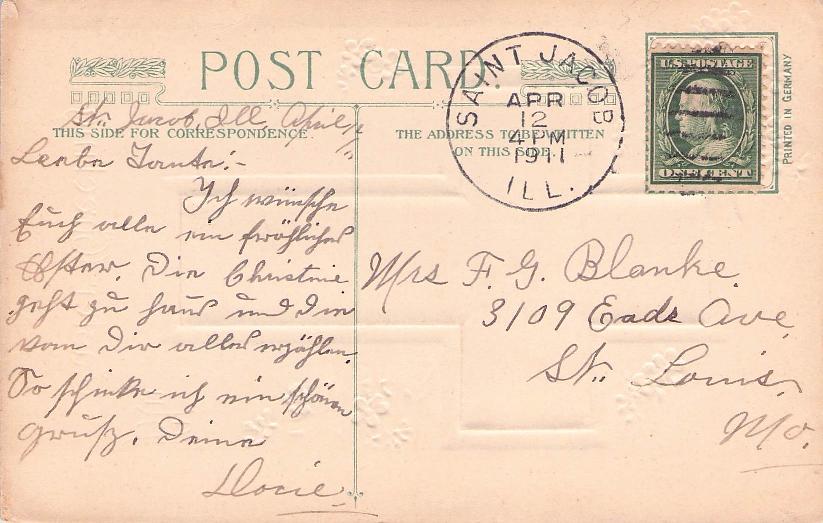 POST CARD.
SAINT JACOB
APR
12
4 PM
1911
ILL.
U.S. POSTAGE
ONE CENT
PRINTED IN GERMANY
St. Jacob, Ill April
THIS SIDE FOR CORRESPONDENCE
THE ADDRESS TO BE WRITTEN
ON THIS SIDE.
Leebe Tante:-
Ich wünsche
Euch alle ein fröhliches
Oster. Die Christine
geht zu haus und die
vom Dir alles erzählen.
So schicke ich ein schönen
Grusz. Deine
Mrs F. G. Blanke.
3109 Eads Ave.
St. Louis,
Mo.